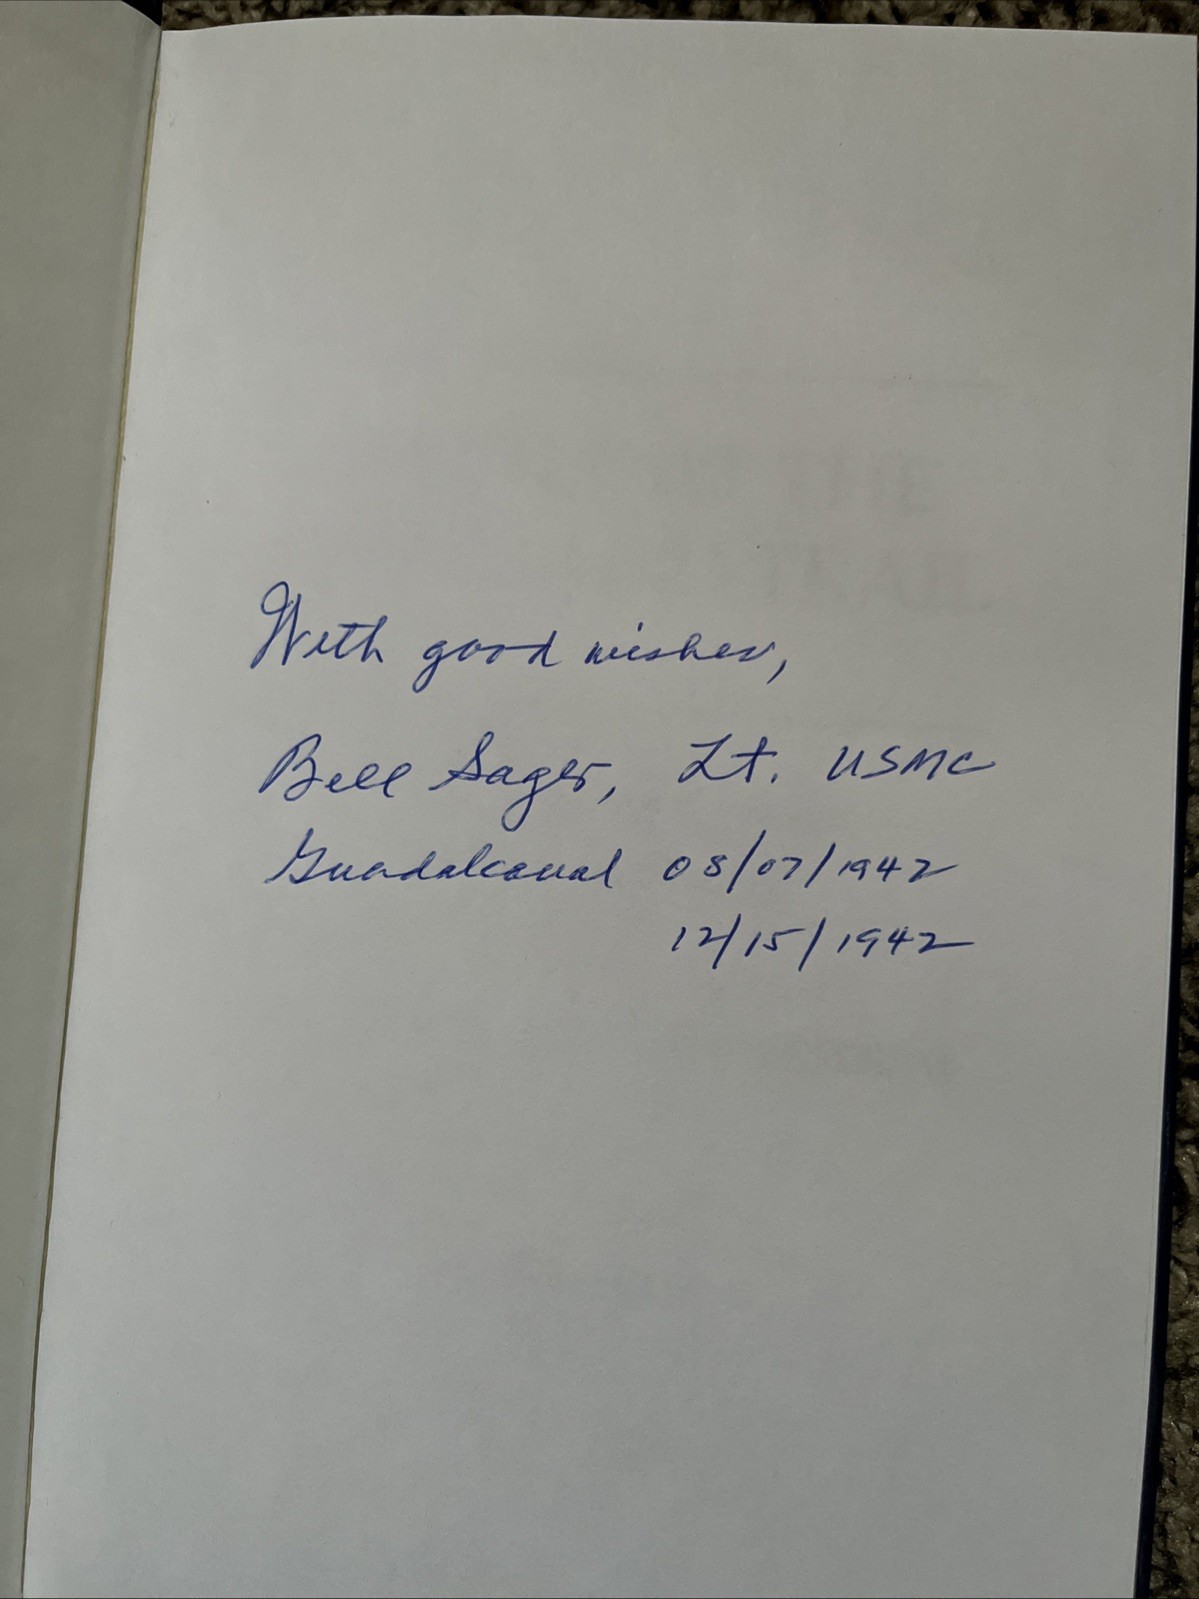 With good wishes,
Bill Sager, Lt. USMC
Guadalcanal 08/07/1942
12/15/1942